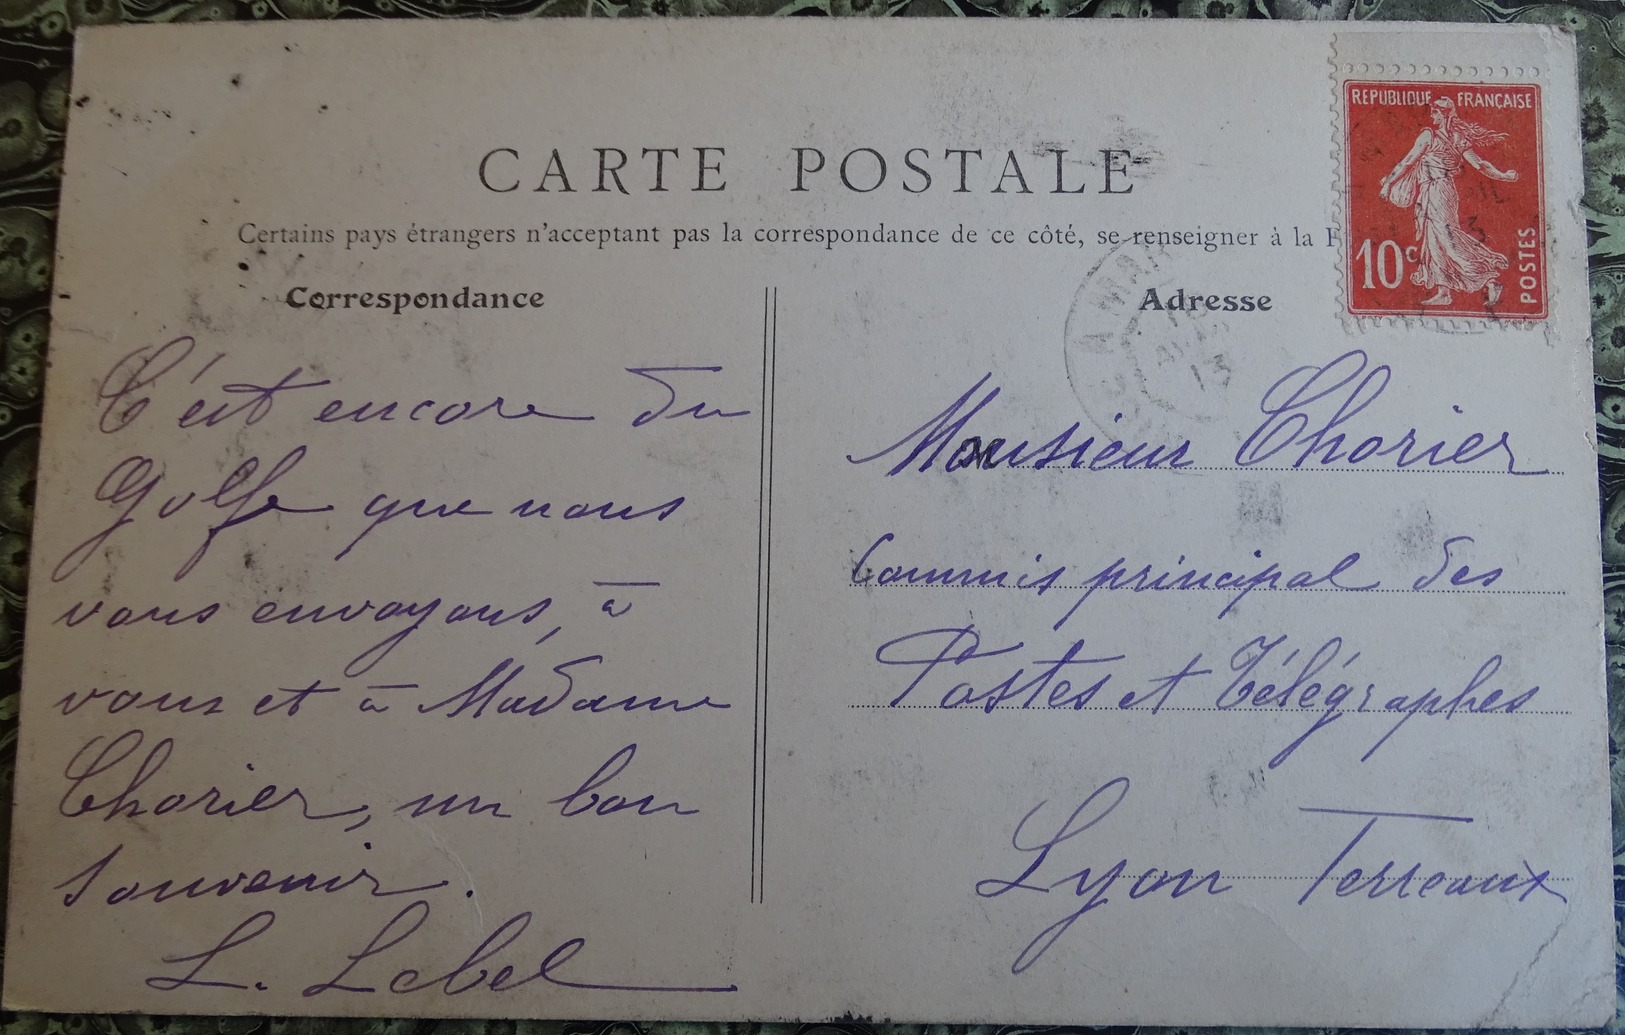 CARTE POSTALE
Certains pays étrangers n'acceptant pas la correspondance de ce côté, se renseigner à la
Correspondance
C'est encore du
Golfe que nous
vous envoyons, à
vous et à Madame
Chorier, un bon
souvenir.
L. Lebel
Adresse
Monsieur Chorier
Commis principal des
Postes et Télégraphes
Lyon Terreaux
REPUBLIQUE FRANÇAISE
10c
POSTES
13